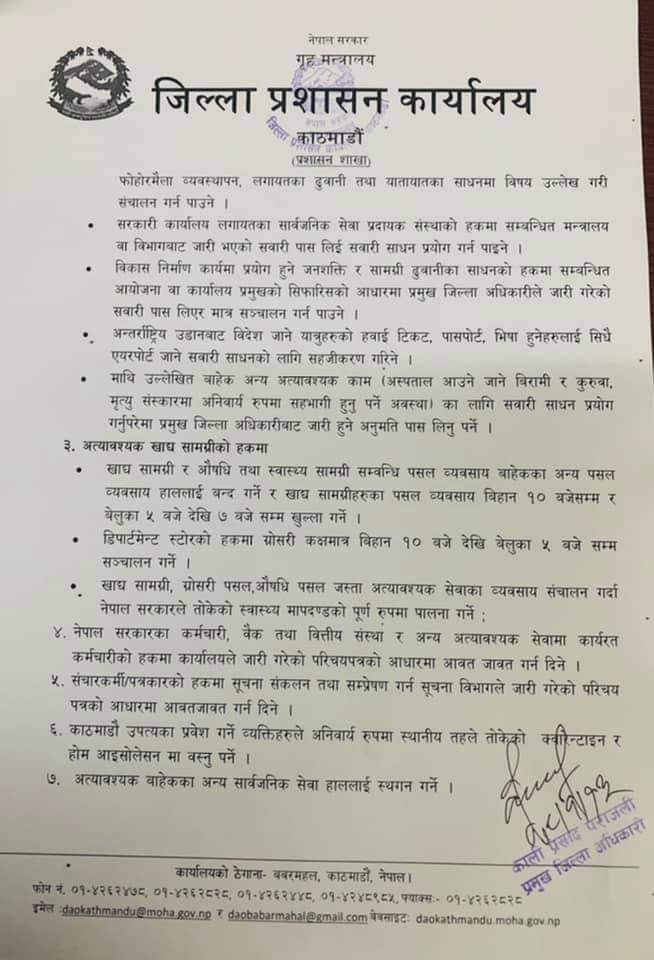 नेपाल सरकार
गृह मन्त्रालय
जिल्ला प्रशासन कार्यालय
काठमाडौं
(प्रशासन शाखा)
फोहोरमैला व्यवस्थापन, लगायतका ढुवानी तथा यातायातका साधनमा विषय उल्लेख गरी
संचालन गर्न पाउने ।
• सरकारी कार्यालय लगायतका सार्वजनिक सेवा प्रदायक संस्थाको हकमा सम्बन्धित मन्त्रालय
वा विभागबाट जारी भएको सवारी पास लिई सवारी साधन प्रयोग गर्न पाइने ।
• विकास निर्माण कार्यमा प्रयोग हुने जनशक्ति र सामग्री ढुवानीका साधनको हकमा सम्बन्धित
आयोजना वा कार्यालय प्रमुखको सिफारिसको आधारमा प्रमुख जिल्ला अधिकारीले जारी गरेको
सवारी पास लिएर मात्र सञ्चालन गर्न पाउने ।
• अन्तर्राष्ट्रिय उडानबाट विदेश जाने यात्रुहरुको हवाई टिकट, पासपोर्ट, भिषा हुनेहरुलाई सिधै
एयरपोर्ट जाने सवारी साधनको लागि सहजीकरण गरिने ।
• माथि उल्लेखित वाहेक अन्य अत्यावश्यक काम (अस्पताल आउने जाने विरामी र कुरुवा,
मृत्यु संस्कारमा अनिवार्य रुपमा सहभागी हुनु पर्ने अवस्था) का लागि सवारी साधन प्रयोग
गर्नुपरेमा प्रमुख जिल्ला अधिकारीबाट जारी हुने अनुमति पास लिनु पर्ने ।
३. अत्यावश्यक खाद्य सामग्रीको हकमा
• खाद्य सामग्री र औषधि तथा स्वास्थ्य सामग्री सम्वन्धि पसल व्यवसाय वाहेकका अन्य पसल
व्यवसाय हाललाई बन्द गर्ने र खाद्य सामग्रीहरुका पसल व्यवसाय विहान १० वजेसम्म र
बेलुका ५ बजे देखि ७ वजे सम्म खुल्ला गर्ने ।
• डिपार्टमेन्ट स्टोरको हकमा ग्रोसरी कक्षमात्र विहान १० वजे देखि बेलुका ५ वजे सम्म
सञ्चालन गर्ने ।
• खाद्य सामग्री, ग्रोसरी पसल,औषधि पसल जस्ता अत्यावश्यक सेवाका व्यवसाय संचालन गर्दा
नेपाल सरकारले तोकेको स्वास्थ्य मापदण्डको पूर्ण रुपमा पालना गर्ने ;
४. नेपाल सरकारका कर्मचारी, वैक तथा वित्तीय संस्था र अन्य अत्यावश्यक सेवामा कार्यरत
कर्मचारीको हकमा कार्यालयले जारी गरेको परिचयपत्रको आधारमा आवत जावत गर्न दिने ।
५. संचारकर्मी/पत्रकारको हकमा सूचना संकलन तथा सम्प्रेषण गर्न सूचना विभागले जारी गरेको परिचय
पत्रको आधारमा आवतजावत गर्न दिने ।
६. काठमाडौ उपत्यका प्रवेश गर्ने व्यक्तिहरुले अनिवार्य रुपमा स्थानीय तहले तोकेको क्वारेन्टाइन र
होम आइसोलेसन मा वस्नु पर्ने ।
७. अत्यावश्यक वाहेकका अन्य सार्वजनिक सेवा हाललाई स्थगन गर्ने ।
काली प्रसाद पराजुली
प्रमुख जिल्ला अधिकारी
कार्यालयको ठेगाना- बबरमहल, काठमाडौं, नेपाल।
फोन नं. ०१-४२६२४७८, ०१-४२६२८२८, ०१-४२६२४४८, ०१-४२४८९८५, फ्याक्सः- ०१-४२६२८२८
इमेल :daokathmandu@moha.gov.np र daobabarmahal@gmail.com वेवसाइटः daokathmandu.moha.gov.np